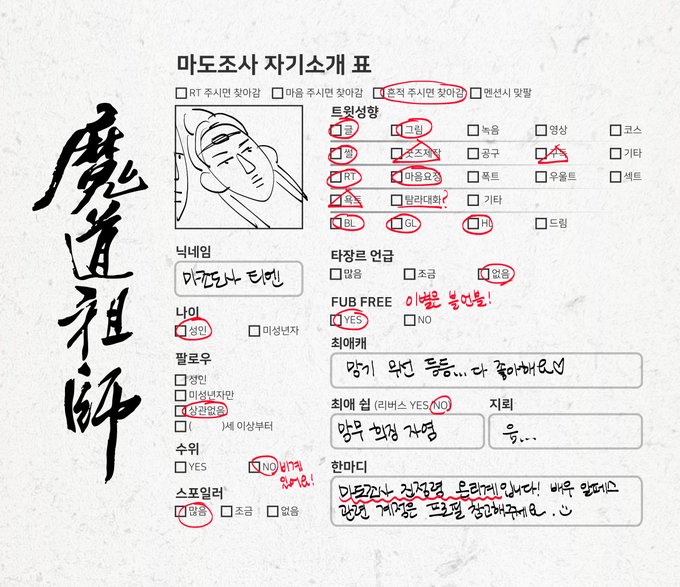 魔道祖師
마도조사 자기소개 표
RT 주시면 찾아감 마음 주시면 찾아감 흔적 주시면 찾아감 멘션시 맞팔
트윗성향
글 그림 녹음 영상 코스
썰 굿즈제작 공구 기타
RT 마음요정 폭트 우울트 섹트
욕트 탐라대화? 기타
BL GL HL 드림
닉네임
마조도사 티엔
타장르 언급
많음 조금 없음
나이
성인 미성년자
FUB FREE 이별은 블언블!
YES NO
팔로우
정인
미성년자만
상관없음
( )세 이상부터
최애캐
망기 무선 등등... 다 좋아해요♡
최애 쉽 (리버스 YES/NO)
망무 희징 자염
지뢰
음...
수위
YES NO 비계
있어요!
스포일러
많음 조금 없음
한마디
마도조사 진정령 온리계입니다! 배우 알페스
관련 계정은 프로필 참고해주세요. :)